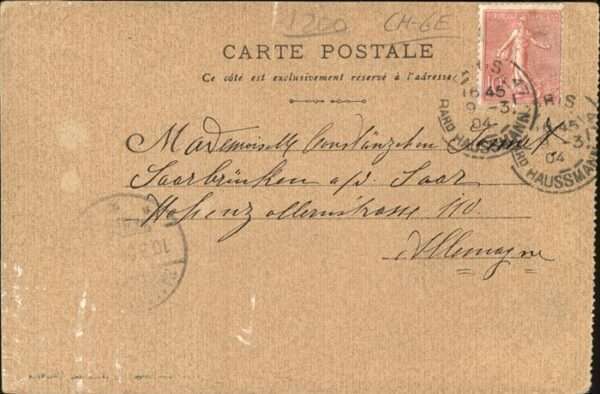 1200 CH-GE
CARTE POSTALE
Ce côté est exclusivement réservé à l'adresse
Mademoiselle
Saarbrücken a/d. Saar
Hohenzollernstrasse 110.
Allemagne
PARIS
16 45
9 - 3
04
HAUSSMANN
RIS
45
3
04
HAUSSMANN
10